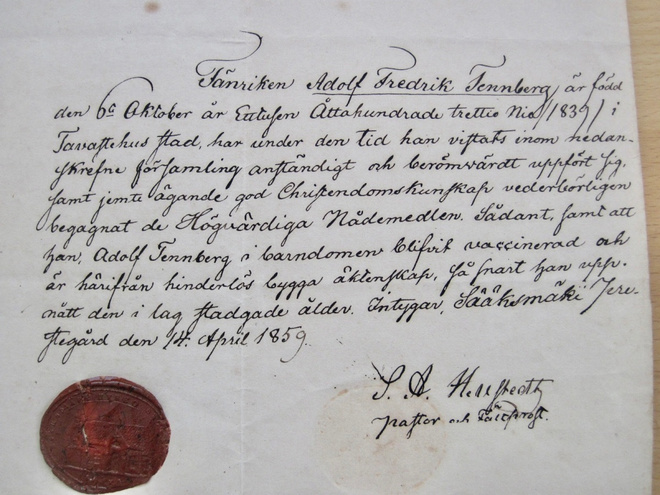 Fänriken Adolf Fredrik Tennberg, är född
den 6e Oktober år Ettusen Åttahundrade trettio Nio /1839/ i
Tavastehus stad, har under den tid han vistats inom nedan-
skrefne församling anständigt och berömvärdt uppfört sig,
samt jemte ägande god Christendomskunskap vederbörligen
begagnat de Högvärdiga Nådemedlen. Sådant, samt att
han, Adolf Tennberg i barndomen blifvit vaccinerad och
är härifrån hinderlös bygga äktenskap, så snart han upp-
nått den i lag stadgade ålder. Intygar, Sääksmäki Pre-
stegård den 14. April 1859.
S. A.
pastor och Fältprost.